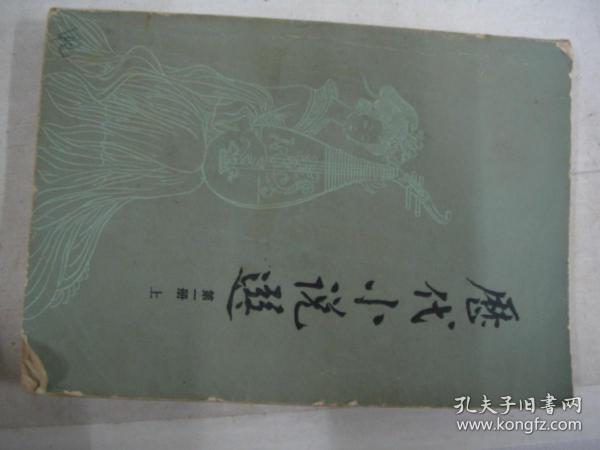 歷代小说選
第一册 上
孔夫子旧書网
www.kongfz.com